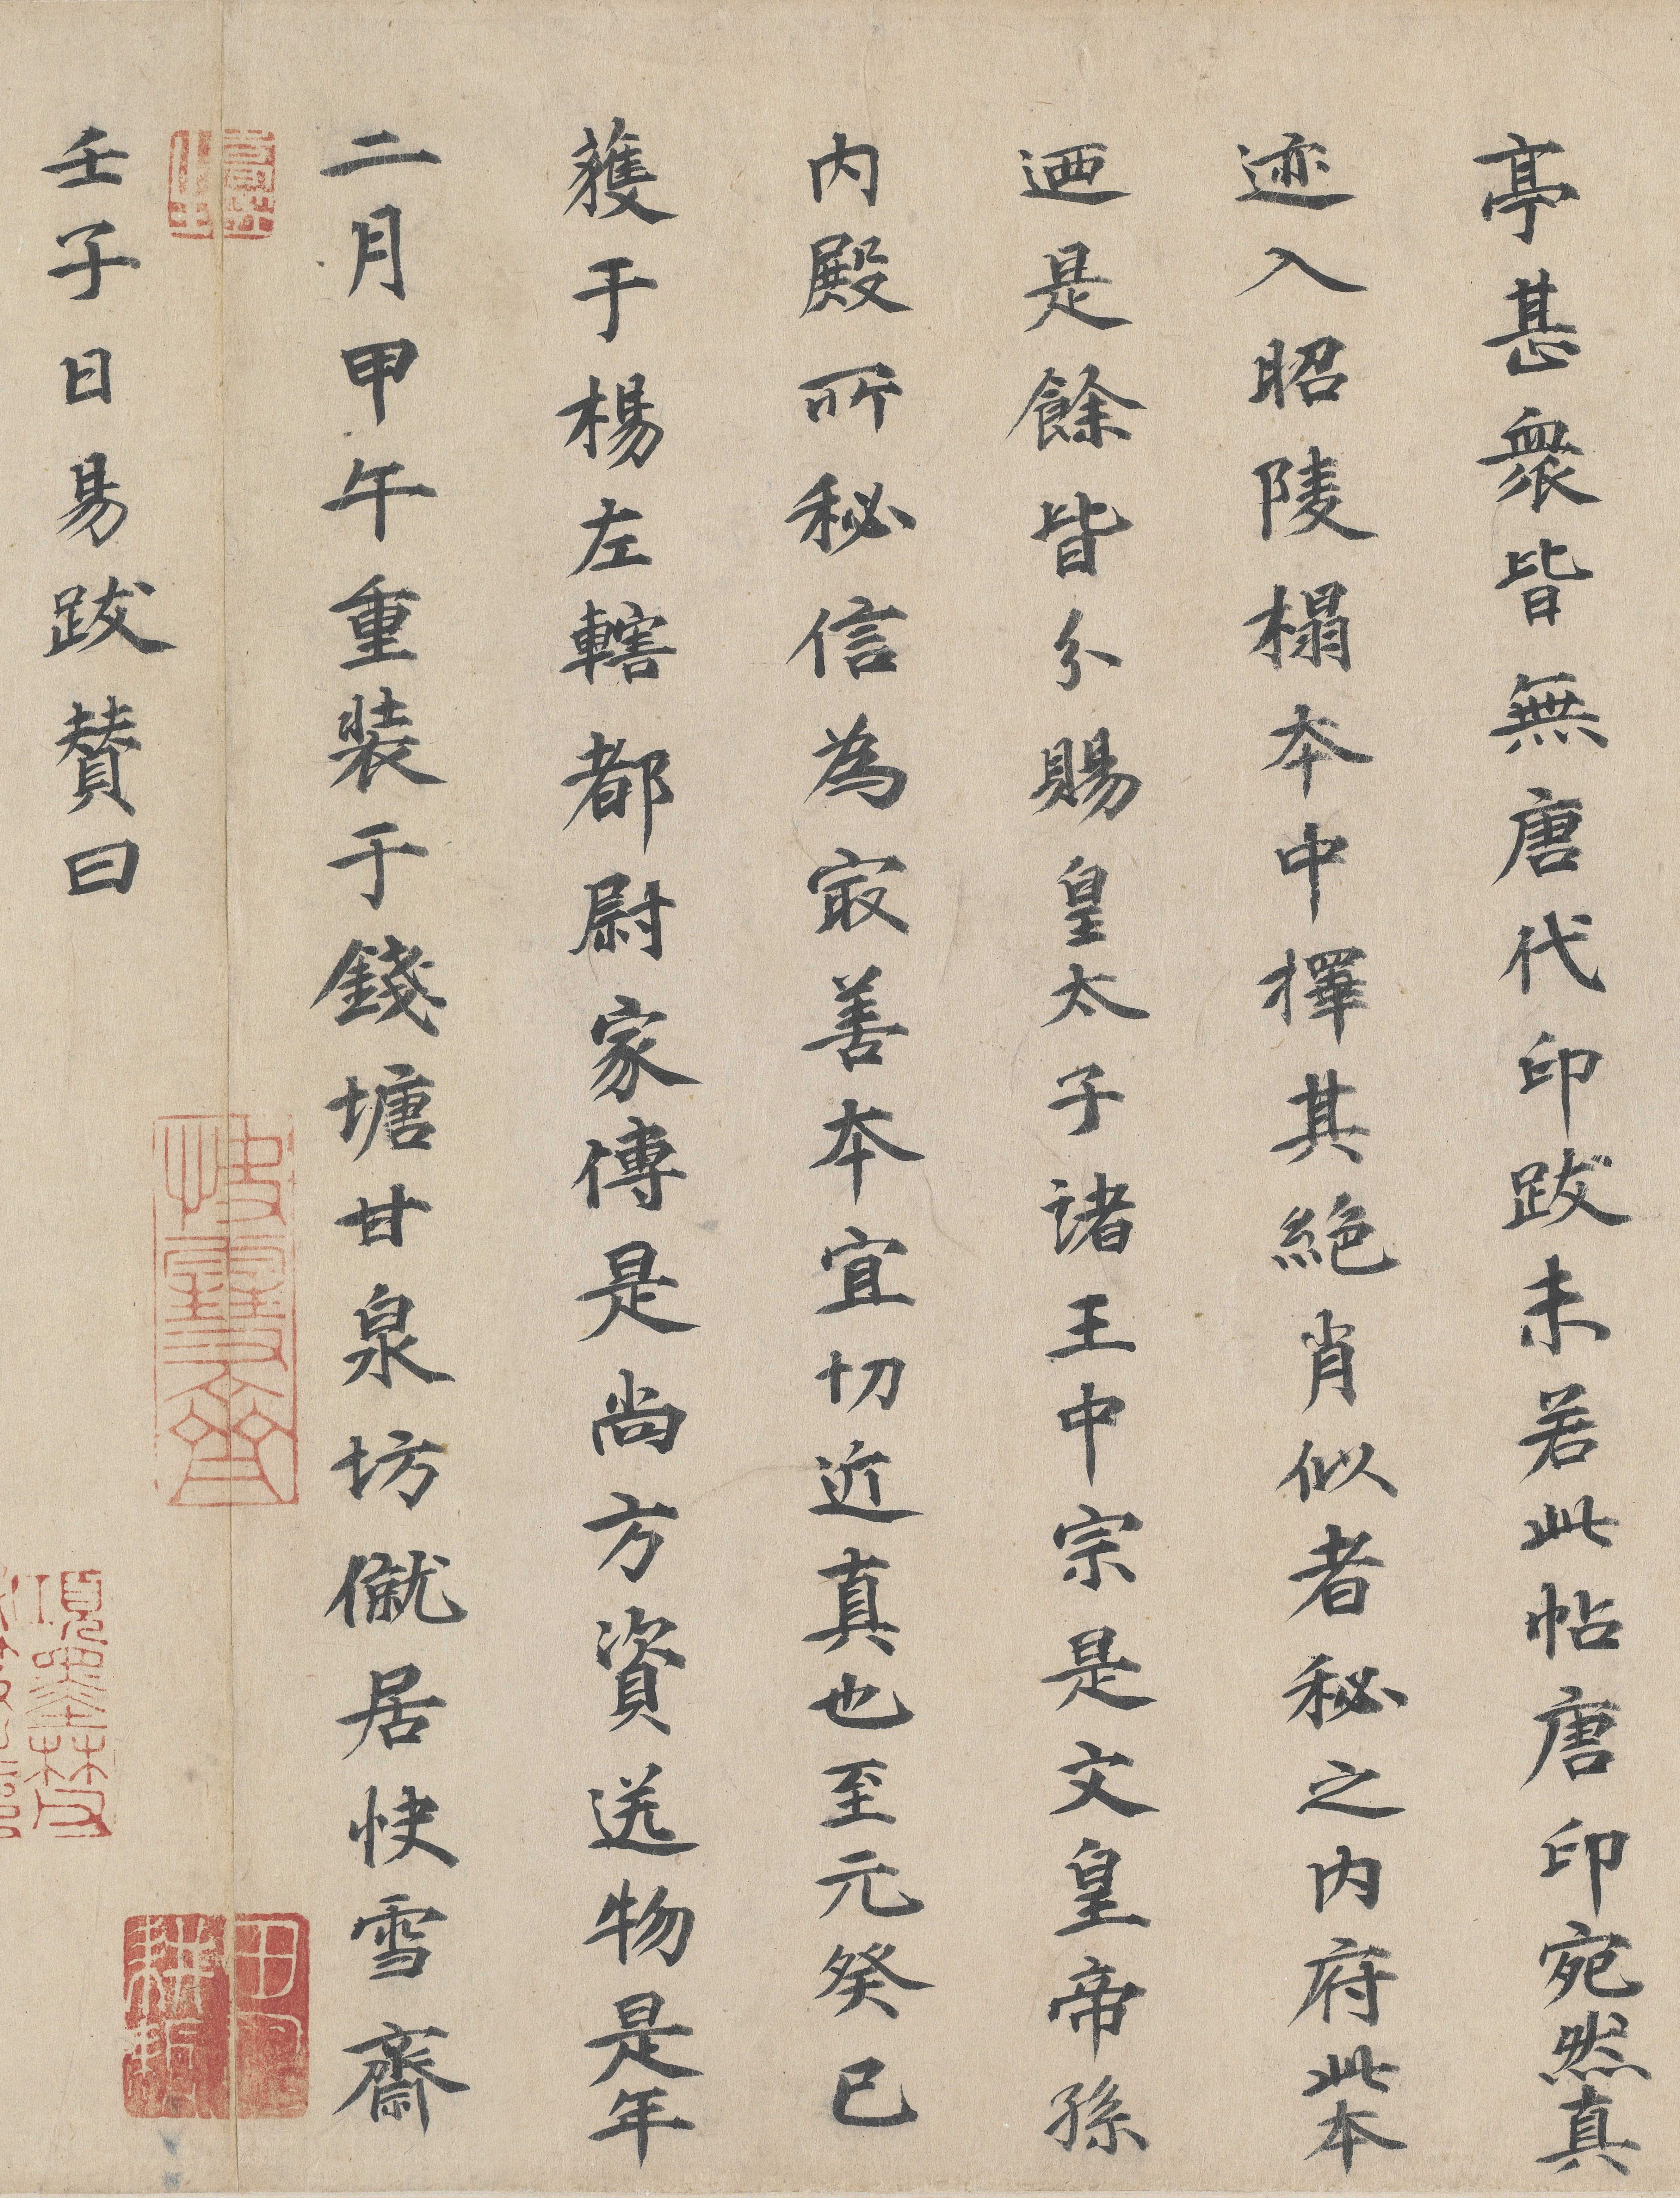 亭甚衆皆無唐代印跋未若此帖唐印宛然真
迹入昭陵榻本中擇其絶肖似者秘之内府此本
迺是餘皆分賜皇太子諸王中宗是文皇帝孫
内殿所秘信為㝡善本宜切近真也至元癸巳
獲于楊左轄都尉家傳是尚方資送物是年
二月甲午重装于錢塘甘泉坊僦居快雪齋
壬子日易跋賛曰
快雪齋
項墨林
田疇
耕耨